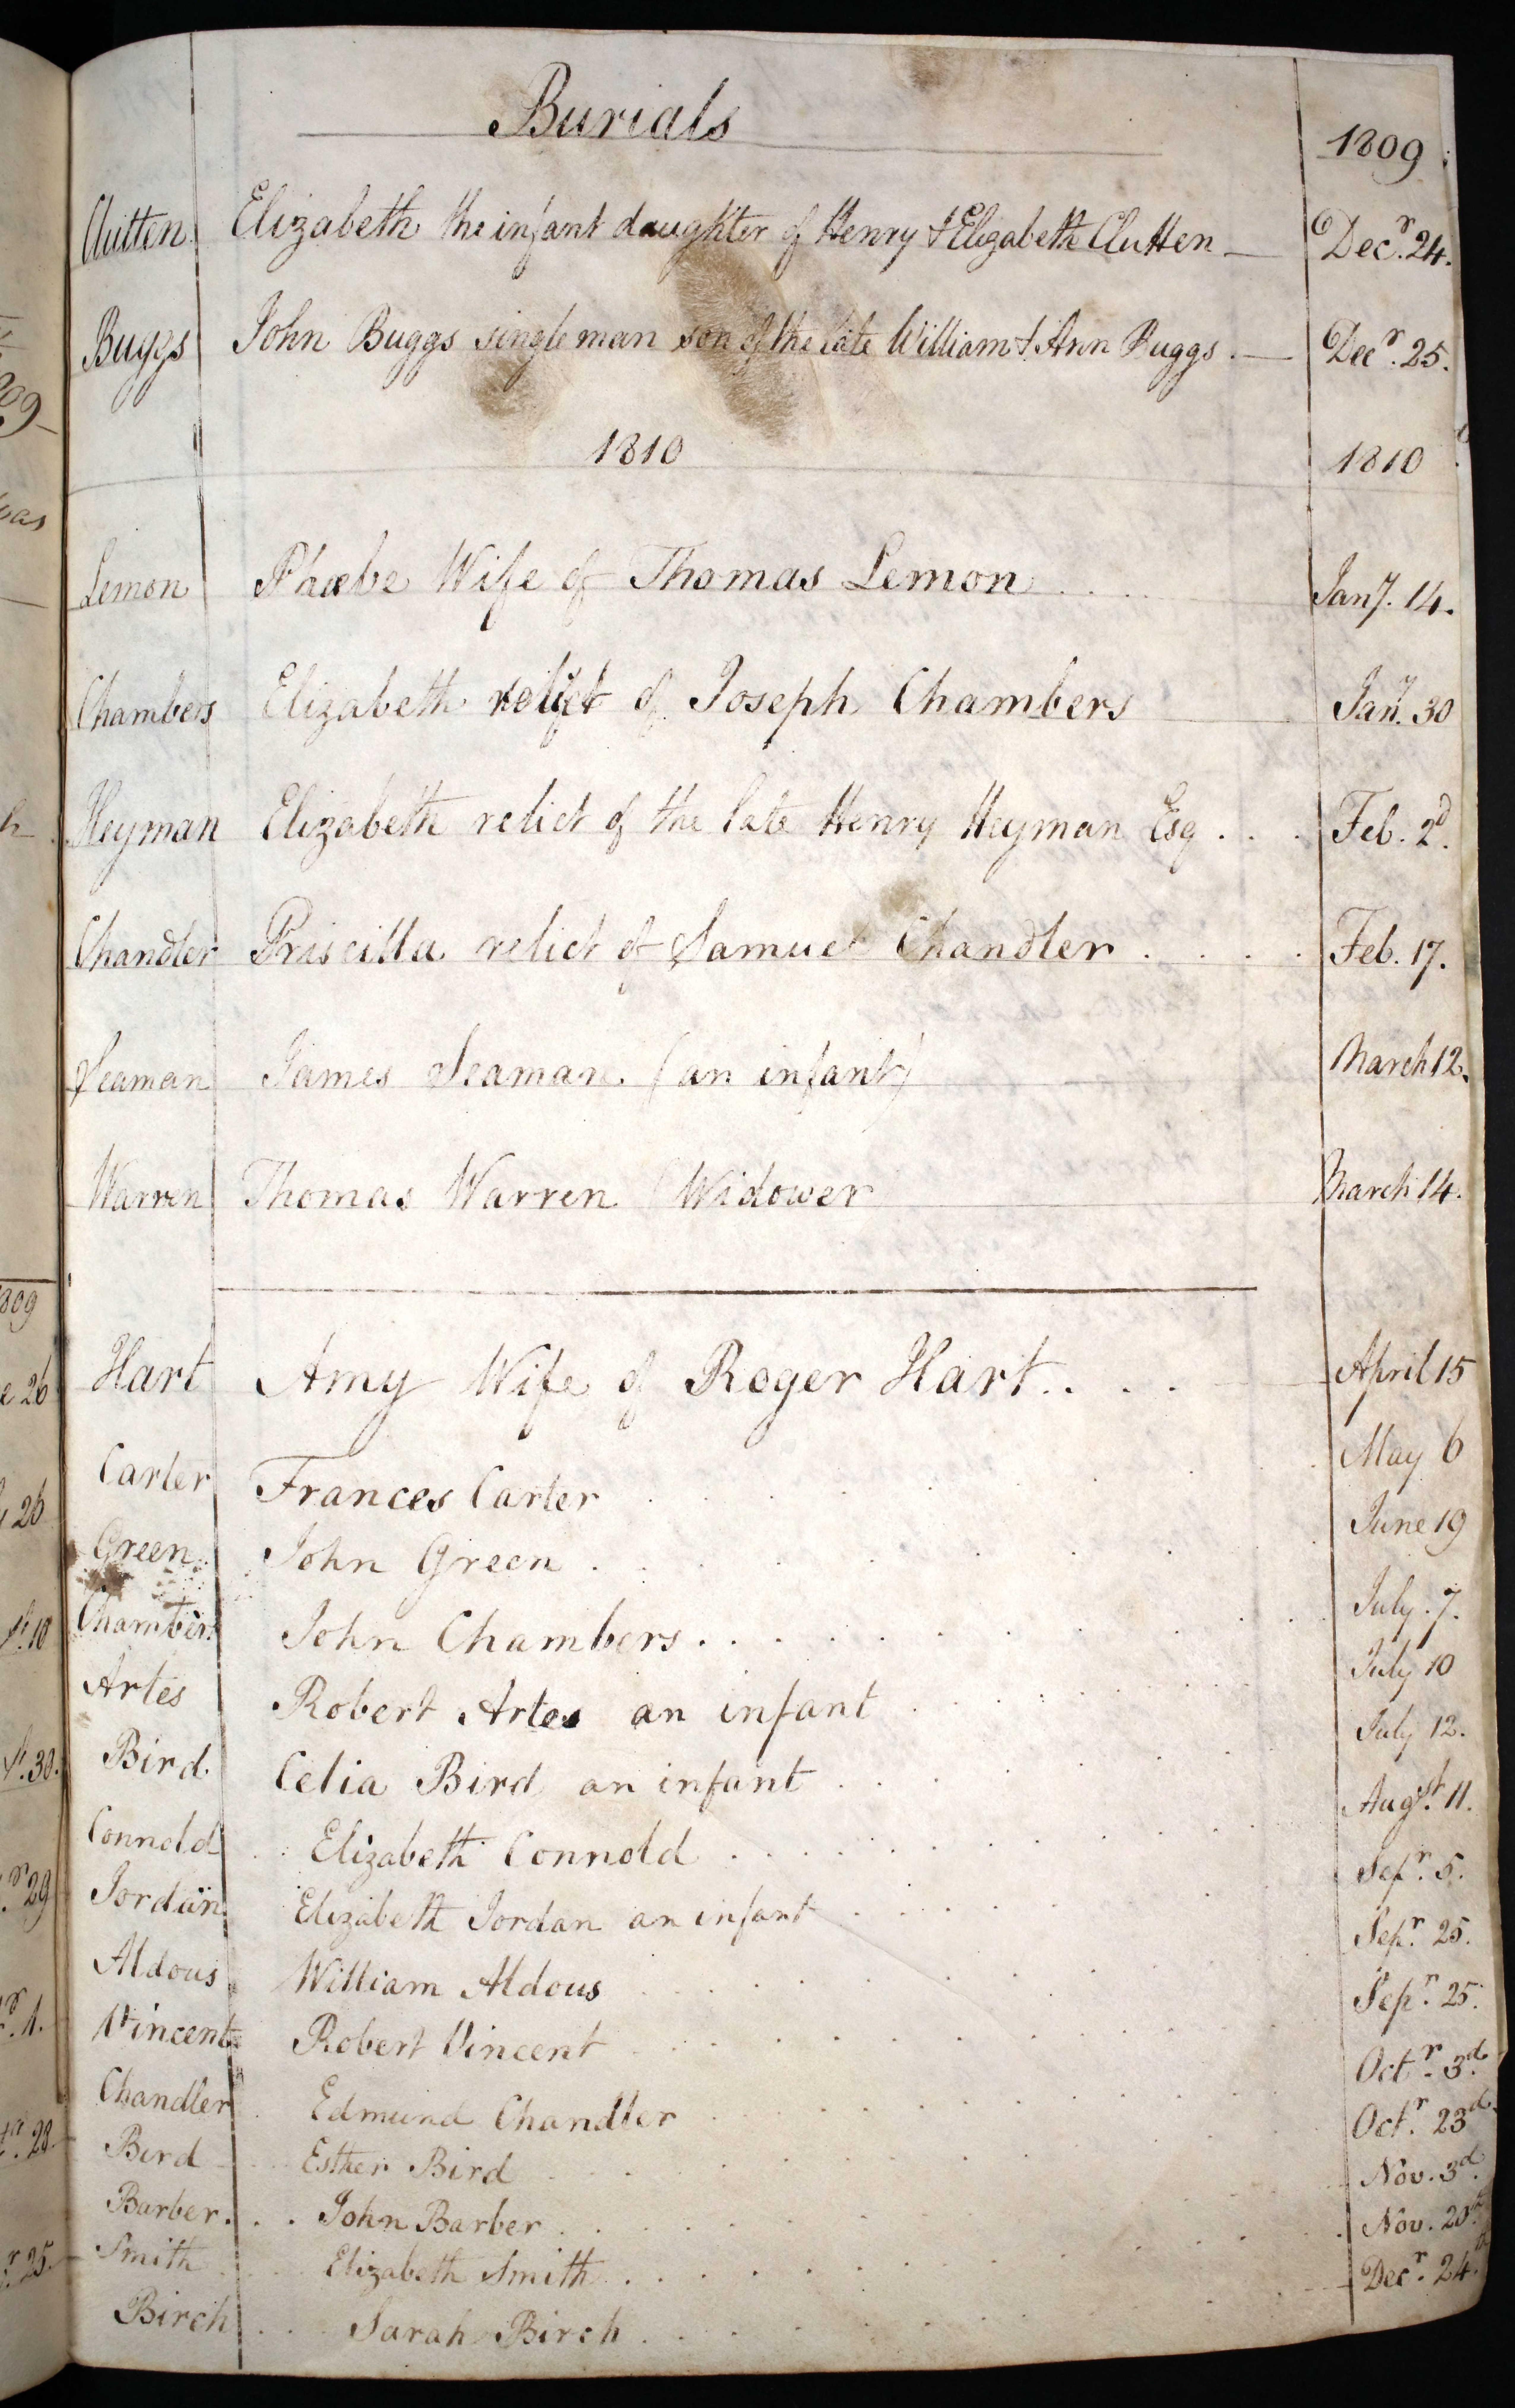 Burials 1809
Clutten Elizabeth the infant daughter of Henry & Elizabeth Clutten Decr. 24.
Buggs John Buggs single man son of the late William & Ann Buggs. Decr. 25.
1810 1810
Lemon Phœbe Wife of Thomas Lemon Jany. 14.
Chambers Elizabeth relict of Joseph Chambers Jany. 30
Heyman Elizabeth relict of the late Henry Heyman Esq Feb. 2d.
Chandler Priscilla relict of Samuel Chandler Feb. 17.
Seaman James Seaman. (an infant) March 12.
Warren Thomas Warren (Widower March 14.
Hart Amy Wife of Roger Hart April 15
Carter Frances Carter May 6
Green John Green June 19
Chambers John Chambers July. 7.
Artes Robert Artes an infant July 10
Bird Celia Bird an infant July 12.
Connold Elizabeth Connold Augst. 11.
Jordan Elizabeth Jordan an infant Sepr. 5.
Aldous William Aldous Sepr. 25.
Vincent Robert Vincent Sepr. 25.
Chandler Edmund Chandler Octr. 3d.
Bird Esther Bird Octr. 23d.
Barber John Barber Nov. 3d.
Smith Elizabeth Smith Nov. 20
Birch Sarah Birch Decr. 24.
809
e 26
26
10
30.
29
1.
28
25.